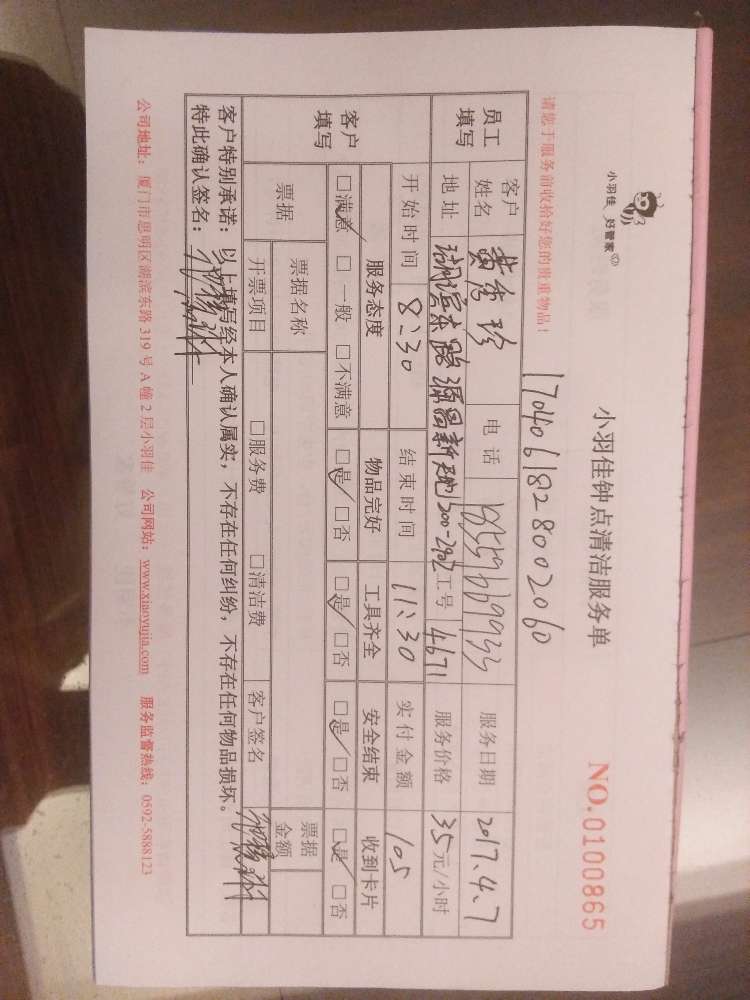 小羽佳 好管家
小羽佳钟点清洁服务单
NO.0100865
请您于服务前收拾好您的贵重物品！
1704061828002060
员工填写 客户姓名 黄秀珍 电话 服务日期 2017.4.7
地址 湖滨东路源昌新天地1300-2902 工号 4671 服务价格 35元/小时
客户填写 开始时间 8:30 结束时间 11:30 实付金额 105
服务态度 物品完好 工具齐全 安全结束 收到卡片
□满意 □一般 □不满意 □是 □否 □是 □否 □是 □否 □是 □否
票据 票据名称 票据金额
开票项目 □服务费 □清洁费 客户签名
客户特别承诺：以上填写经本人确认属实，不存在任何纠纷，不存在任何物品损坏。
特此确认签名：
公司地址：厦门市思明区湖滨东路 319 号 A 幢 2 层小羽佳 公司网站：www.xiaoyujia.com 服务监督热线：0592-5888123